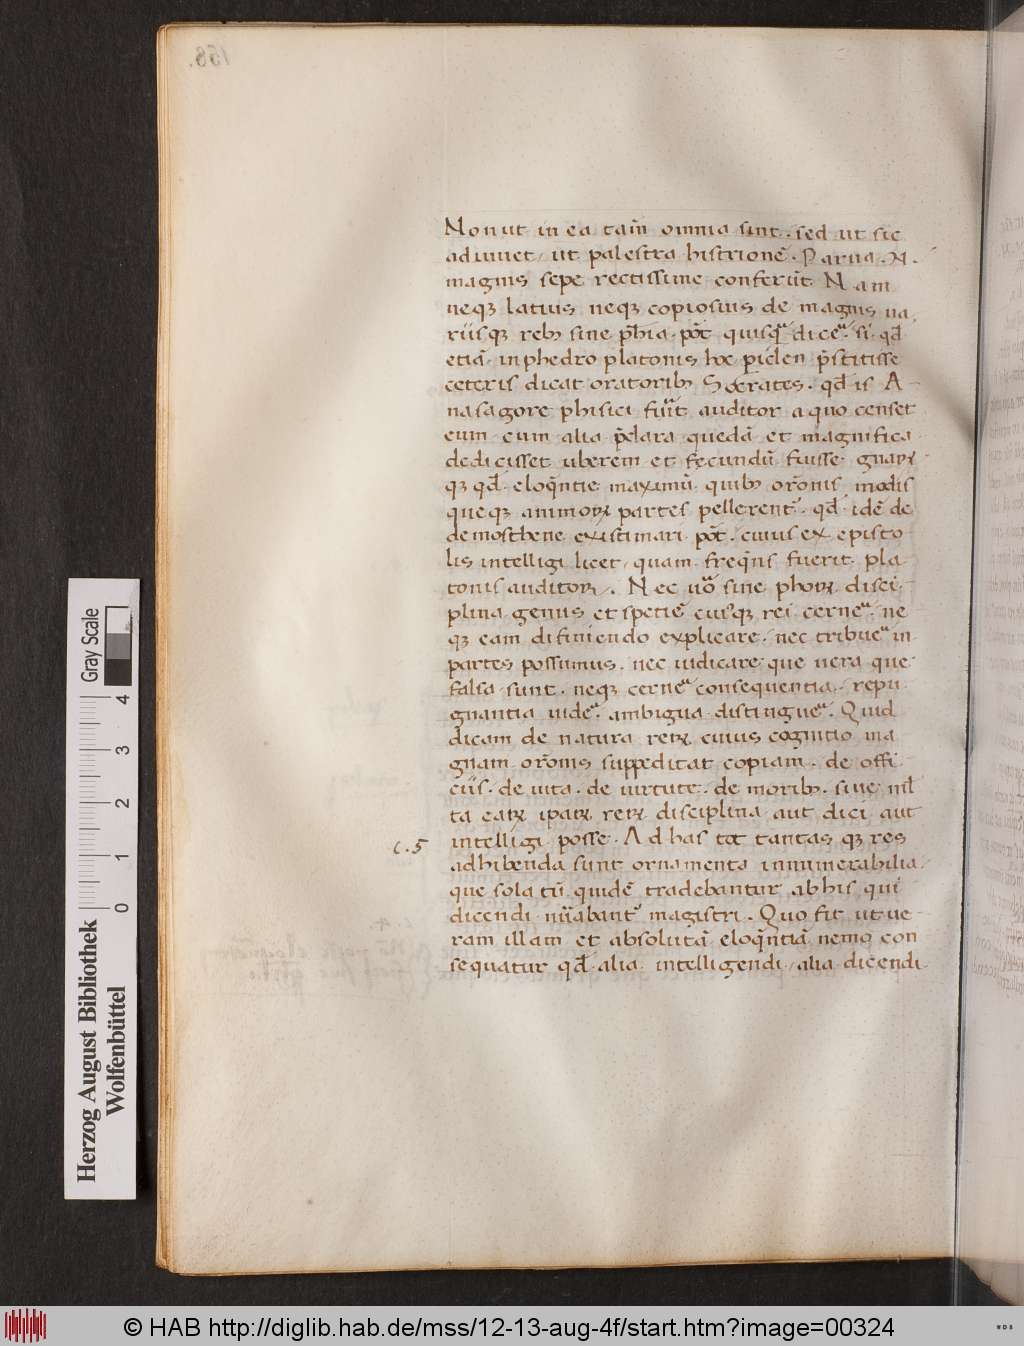 Non ut in ea tam̄ omnia sint. sed ut sic
adiuuet, ut palestra histrionē. Parua. N.
magnis sepe rectissime conferūt. Nam
neqꝫ latius neqꝫ copiosius de magnis ua
riisqꝫ rebꝰ sine ph̄ia pōt quisqᷓ dicēͬ. si qđ
etiā in phedro platonis hoc periclen p̄stitisse
ceteris dicat oratoribꝰ Socrates. qđ is A
nasagore phisici fuit auditor a quo censet
eum cum alia p̄clara quedā et magnifica
dedicisset uberem et fecundū fuisse gnarꝝ
qꝫ qđ eloq̄ntie maximū quibꝰ or̄onis modis
queqꝫ animorꝝ partes pellerent. qđ idē de
demosthene existimari pōt. cuius ex episto
lis intelligi licet, quam freq̄ns fuerit pla
tonis auditorꝝ. Nec uͦo sine phorꝝ disci
plina genus et spetiē cuiꝰqꝫ rei cerneͬ. ne
qꝫ eam difiniendo explicare. nec tribueͬ in
partes possumus. nec iudicare que uera que
falsa sunt. neqꝫ cerneͬ consequentia. repu
gnantia uideͬ. ambigua distingueͬ. Quid
dicam de natura rerꝝ cuius cognitio ma
gnam or̄onis suppeditat copiam. de offi
ciis. de uita. de uirtute. de moribꝰ. siue mĺ
ta earꝝ iparꝝ rerꝝ disciplina aut dici aut
intelligi posse. Ad has tot tantas qꝫ res
adhibenda sunt ornamenta innumerabilia.
que sola tū quidē tradebantur ab his qui
dicendi nūabant magistri. Quo fit ut ue
ram illam et absolutā eloq̄ntiā nemo con
sequatur qđ alia intelligendi, alia dicendi
c. 5
158.
Gray Scale
4 3 2 1 0
Herzog August Bibliothek
Wolfenbüttel
© HAB http://diglib.hab.de/mss/12-13-aug-4f/start.htm?image=00324